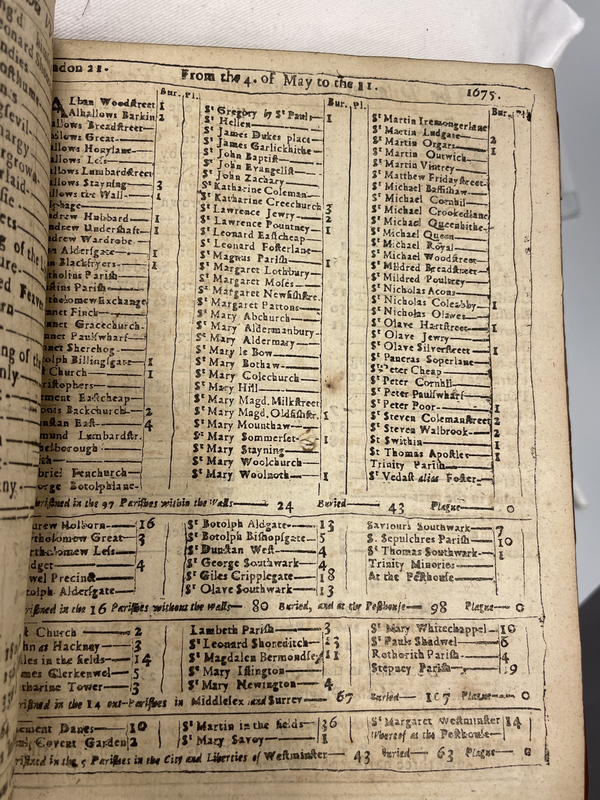 ndon 21. From the 4. of May to the 11. 1675.
Bur. Pl.
Lban Woodstreet 1
Alhallows Barkin 2
llows Breadstreet
llows Great
llows Honylane
llows Less
llows Lumbardstreet
llows Stayning 3
llows the Wall 1
phage
drew Hubbard 1
ndrew Undershaft 1
drew Wardrobe
Aldersgate 1
Blackfryers 1
tholins Parish
stins Parish
tholomew Exchange
nnet Finch
nnet Gracechurch
nnet Paulswharf
nnet Sherehog
tolph Billingsgate 1
Church 1
ristophers
ment Eastcheap
onis Backchurch 2
nstan East 4
mund Lumbardstr.
helborough
ith
briel Fenchurch
orge Botolphlane
Bur. Pl.
St Gregory by St Pauls 1
St Hellen
St James Dukes place
St James Garlickhithe
St John Baptist
St John Evangelist
St John Zachary
St Katharine Coleman
St Katharine Creechurch 3
St Lawrence Jewry 2
St Lawrence Pountney 1
St Leonard Eastcheap
St Leonard Fosterlane
St Magnus Parish 1
St Margaret Lothbury
St Margaret Moses
St Margaret Newfishstre.
St Margaret Pattons
St Mary Abchurch
St Mary Aldermanbury
St Mary Aldermary
St Mary le Bow
St Mary Bothaw
St Mary Colechurch
St Mary Hill
St Mary Magd. Milkstreet
St Mary Magd. Oldfishstr. 1
St Mary Mounthaw
St Mary Sommerset 1
St Mary Stayning
St Mary Woolchurch
St Mary Woolnoth 1
Bur. Pl.
St Martin Iremongerlane
St Martin Ludgate 2
St Martin Orgars 1
St Martin Outwich
St Martin Vintrey
St Matthew Fridaystreet
St Michael Bassishaw
St Michael Cornhil
St Michael Crookedlane
St Michael Queenhithe
St Michael Quern
St Michael Royal
St Michael Woodstreet
St Mildred Breadstreet
St Mildred Poultrey
St Nicholas Acons
St Nicholas Coleabby 1
St Nicholas Olaves
St Olave Hartstreet 1
St Olave Jewry
St Olave Silverstreet 1
St Pancras Soperlane
St Peter Cheap
St Peter Cornhil
St Peter Paulswharf
St Peter Poor 1
St Steven Colemanstreet 2
St Steven Walbrook 2
St Swithin 1
St Thomas Apostles 1
Trinity Parish
St Vedast alias Foster
ristned in the 97 Parishes within the Walls 24 Buried 43 Plague 0
drew Holborn 16
tholomew Great 3
rtholomew Less
dget 4
wel Precinct
tolph Aldersgate
St Botolph Aldgate 13
St Botolph Bishopsgate 5
St Dunstan West 4
St George Southwark 4
St Giles Cripplegate 18
St Olave Southwark 13
Saviours Southwark 7
S. Sepulchres Parish 10
St Thomas Southwark 1
Trinity Minories
At the Pesthouse
ristned in the 16 Parishes without the Walls 80 Buried, and at the Pesthouse 98 Plague 0
Church 2
hn at Hackney 3
les in the fields 14
mes Clerkenwel 5
tharine Tower 3
Lambeth Parish 3
St Leonard Shoreditch
St Magdalen Bermondsey 11
St Mary Islington
St Mary Newington 4
St Mary Whitechappel 10
St Pauls Shadwel 6
Rothorith Parish 4
Stepney Parish
ristned in the 14 out-Parishes in Middlesex and Surrey 67 Buried 107 Plague 0
ement Danes 10
Covent Garden 2
St Martin in the fields 36
St Mary Savoy 1
St Margaret Westminster 14
Whereof at the Pesthouse
ristned in the 5 Parishes in the City and Liberties of Westminster 43 Buried 63 Plague 0